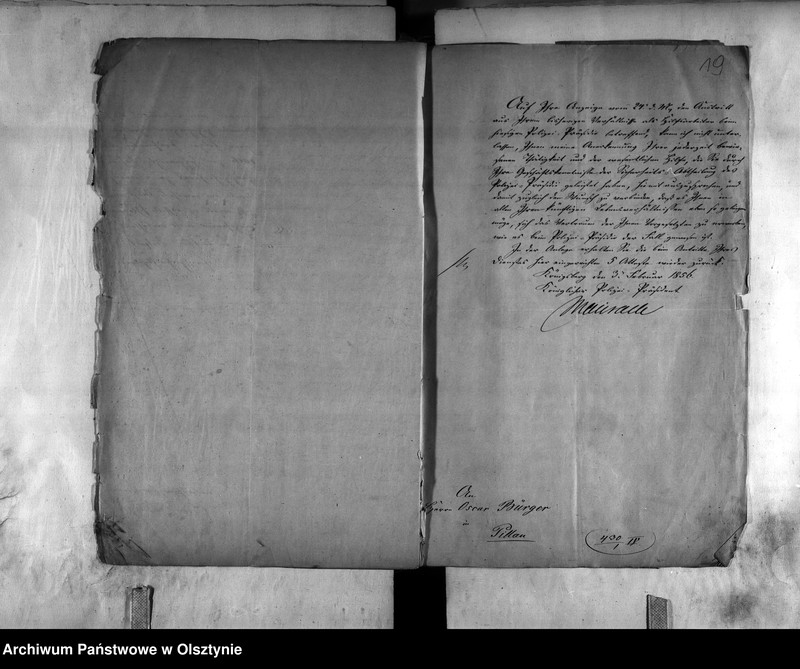 19
Auf Ihre Anzeige vom 24. d. Mts, den Austritt
aus Ihrem bisherigen Verhältnisse als Hilfsarbeiter beim
hiesigen Polizei-Präsidio betreffend, kann ich nicht unter-
lassen, Ihnen meine Anerkennung Ihrer jederzeit bewie-
senen Thätigkeit und der wesentlichen Hilfe, die Sie durch
Ihre Geschäftskenntniß der Sicherheits-Abtheilung des
Polizei-Präsidii geleistet haben, hiermit auszusprechen, und
damit zugleich den Wunsch zu verbinden, daß es Ihnen in
allen Ihren künftigen Lebensverhältnissen eben so gelingen
möge, sich das Vertrauen der Ihnen Vorgesetzten zu erwerben,
wie es beim Polizei-Präsidio der Fall gewesen ist.
In der Anlage erhalten Sie die beim Antritte Ihres
Dienstes hier eingereichten 5 Atteste wieder zurück.
Königsberg den 3. Februar 1856
Königlicher Polizei-Präsident
Maurach
An
Herrn Oscar Bürger
in
Pillau
430/1 IV
Archiwum Państwowe w Olsztynie